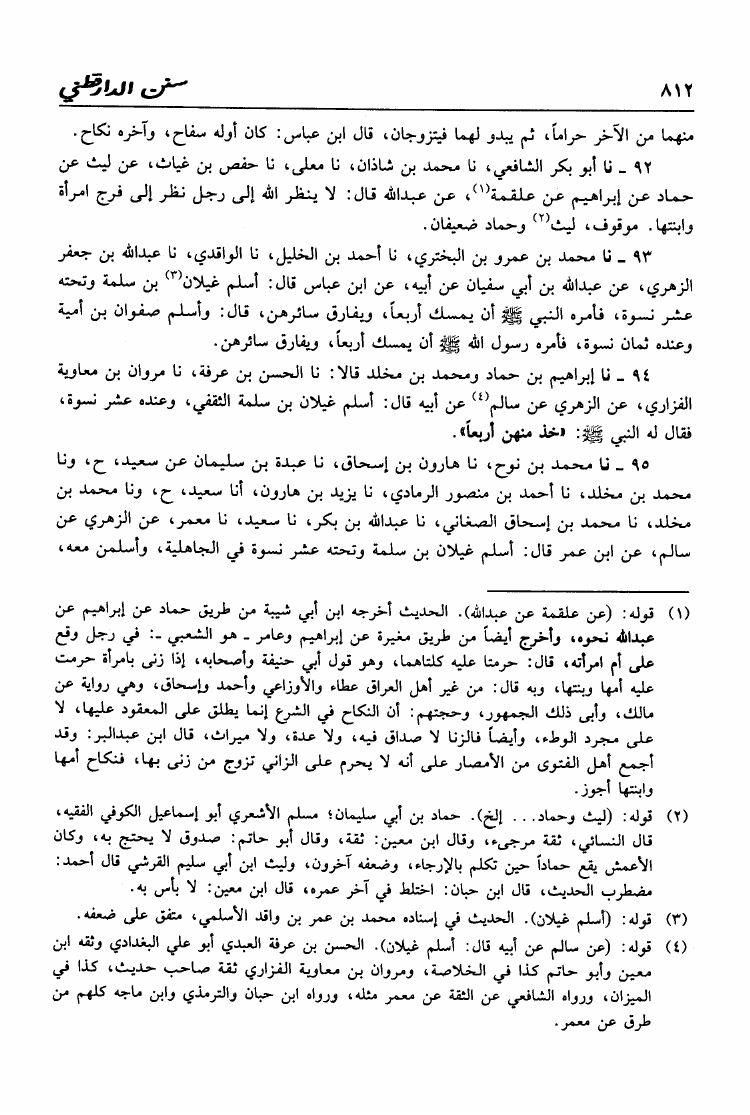 ٨١٢ سنن الدارقطني
منهما من الآخر حراماً، ثم يبدو لهما فيتزوجان، قال ابن عباس: كان أوله سفاح، وآخره نكاح.
٩٢ ـ نا أبو بكر الشافعي، نا محمد بن شاذان، نا معلى، نا حفص بن غياث، عن ليث عن
حماد عن إبراهيم عن علقمة(١)، عن عبدالله قال: لا ينظر الله إلى رجل نظر إلى فرج امرأة
وابنتها. موقوف، ليث(٢) وحماد ضعيفان.
٩٣ ـ نا محمد بن عمرو بن البختري، نا أحمد بن الخليل، نا الواقدي، نا عبدالله بن جعفر
الزهري، عن عبدالله بن أبي سفيان عن أبيه، عن ابن عباس قال: أسلم غيلان(٣) بن سلمة وتحته
عشر نسوة، فأمره النبي ﷺ أن يمسك أربعاً، ويفارق سائرهن، قال: وأسلم صفوان بن أمية
وعنده ثمان نسوة، فأمره رسول الله ﷺ أن يمسك أربعاً، ويفارق سائرهن.
٩٤ ـ نا إبراهيم بن حماد ومحمد بن مخلد قالا: نا الحسن بن عرفة، نا مروان بن معاوية
الفزاري، عن الزهري عن سالم(٤) عن أبيه قال: أسلم غيلان بن سلمة الثقفي، وعنده عشر نسوة،
فقال له النبي ﷺ: «خذ منهن أربعاً».
٩٥ ـ نا محمد بن نوح، نا هارون بن إسحاق، نا عبدة بن سليمان عن سعيد، ح، ونا
محمد بن مخلد، نا أحمد بن منصور الرمادي، نا يزيد بن هارون، أنا سعيد، ح، ونا محمد بن
مخلد، نا محمد بن إسحاق الصغاني، نا عبدالله بن بكر، نا سعيد، نا معمر، عن الزهري عن
سالم، عن ابن عمر قال: أسلم غيلان بن سلمة وتحته عشر نسوة في الجاهلية، وأسلمن معه،
(١) قوله: (عن علقمة عن عبدالله). الحديث أخرجه ابن أبي شيبة من طريق حماد عن إبراهيم عن
عبدالله نحوه، وأخرج أيضاً من طريق مغيرة عن إبراهيم وعامر ـ هو الشعبي ـ: في رجل وقع
على أم امرأته، قال: حرمتا عليه كلتاهما، وهو قول أبي حنيفة وأصحابه، إذا زنى بامرأة حرمت
عليه أمها وبنتها، وبه قال: من غير أهل العراق عطاء والأوزاعي وأحمد وإسحاق، وهي رواية عن
مالك، وأبى ذلك الجمهور، وحجتهم: أن النكاح في الشرع إنما يطلق على المعقود عليها، لا
على مجرد الوطء، وأيضاً فالزنا لا صداق فيه، ولا عدة، ولا ميراث، قال ابن عبدالبر: وقد
أجمع أهل الفتوى من الأمصار على أنه لا يحرم على الزاني تزوج من زنى بها، فنكاح أمها
وابنتها أجوز.
(٢) قوله: (ليث وحماد... إلخ). حماد بن أبي سليمان؛ مسلم الأشعري أبو إسماعيل الكوفي الفقيه،
قال النسائي، ثقة مرجىء، وقال ابن معين: ثقة، وقال أبو حاتم: صدوق لا يحتج به، وكان
الأعمش يقع حماداً حين تكلم بالإرجاء، وضعفه آخرون، وليث ابن أبي سليم القرشي قال أحمد:
مضطرب الحديث، قال ابن حبان: اختلط في آخر عمره، قال ابن معين: لا بأس به.
(٣) قوله: (أسلم غيلان). الحديث في إسناده محمد بن عمر بن واقد الأسلمي، متفق على ضعفه.
(٤) قوله: (عن سالم عن أبيه قال: أسلم غيلان). الحسن بن عرفة العبدي أبو علي البغدادي وثقه ابن
معين وأبو حاتم كذا في الخلاصة، ومروان بن معاوية الفزاري ثقة صاحب حديث، كذا في
الميزان، ورواه الشافعي عن الثقة عن معمر مثله، ورواه ابن حبان والترمذي وابن ماجه كلهم من
طرق عن معمر.